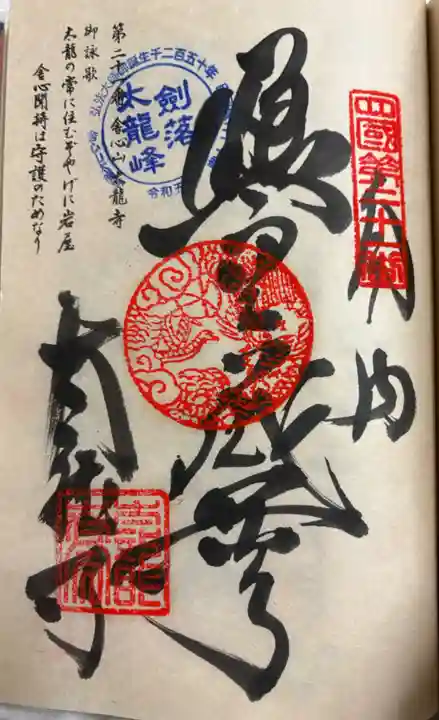 四國第二十一番
奉納
虚空蔵尊
弘法大師御誕生千二百五十年
劍落
太龍峰
令和五
第二十一番 舎心山 太龍寺
御詠歌
太龍の常に住むぞやげに岩屋
舎心聞持は守護のためなり
太龍寺